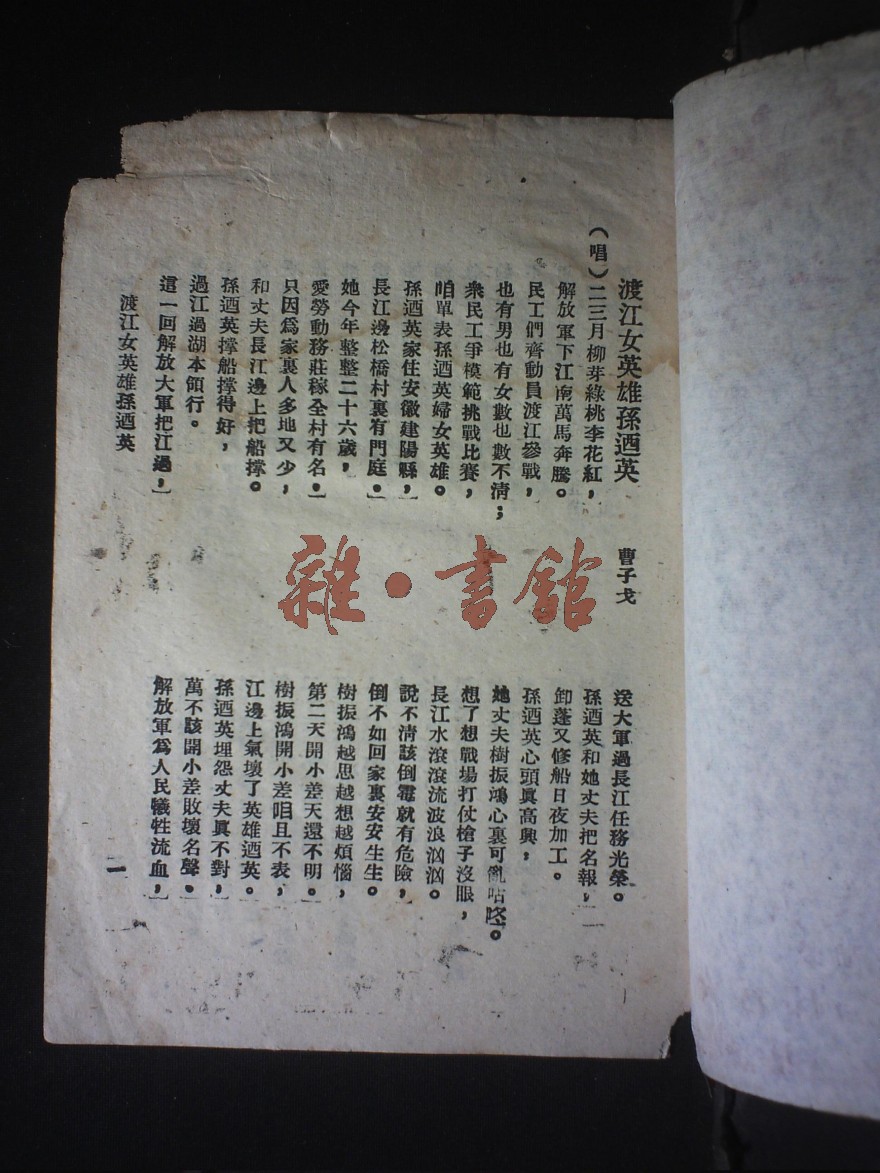 渡江女英雄孫迺英
曹子戈
(唱)二三月柳芽綠桃李花紅,
解放軍下江南萬馬奔騰。
民工們齊動員渡江參戰,
也有男也有女數也數不清;
衆民工爭模範挑戰比賽,
咱單表孫迺英婦女英雄。
孫迺英家住安徽建陽縣,
長江邊松橋村裏有門庭。
她今年整整二十六歲,
愛勞動務莊稼全村有名。
只因爲家裏人多地又少,
和丈夫長江邊上把船撑。
孫迺英撑船撑得好,
過江過湖本領行。
這一回解放大軍把江過,
送大軍過長江任務光榮。
孫迺英和她丈夫把名報,
卸蓬又修船日夜加工。
孫迺英心頭眞高興,
她丈夫樹振鴻心裏可亂咕咚。
想了想戰場打仗槍子沒眼,
長江水滾滾流波浪汹汹。
說不清該倒霉就有危險,
倒不如回家裏安安生生。
樹振鴻越思越想越煩惱,
第二天開小差天還不明。
樹振鴻開小差咱且不表,
江邊上氣壞了英雄迺英。
孫迺英埋怨丈夫眞不對,
萬不該開小差敗壞名聲。
解放軍爲人民犧牲流血,
渡江女英雄孫迺英
一
雜·書舘